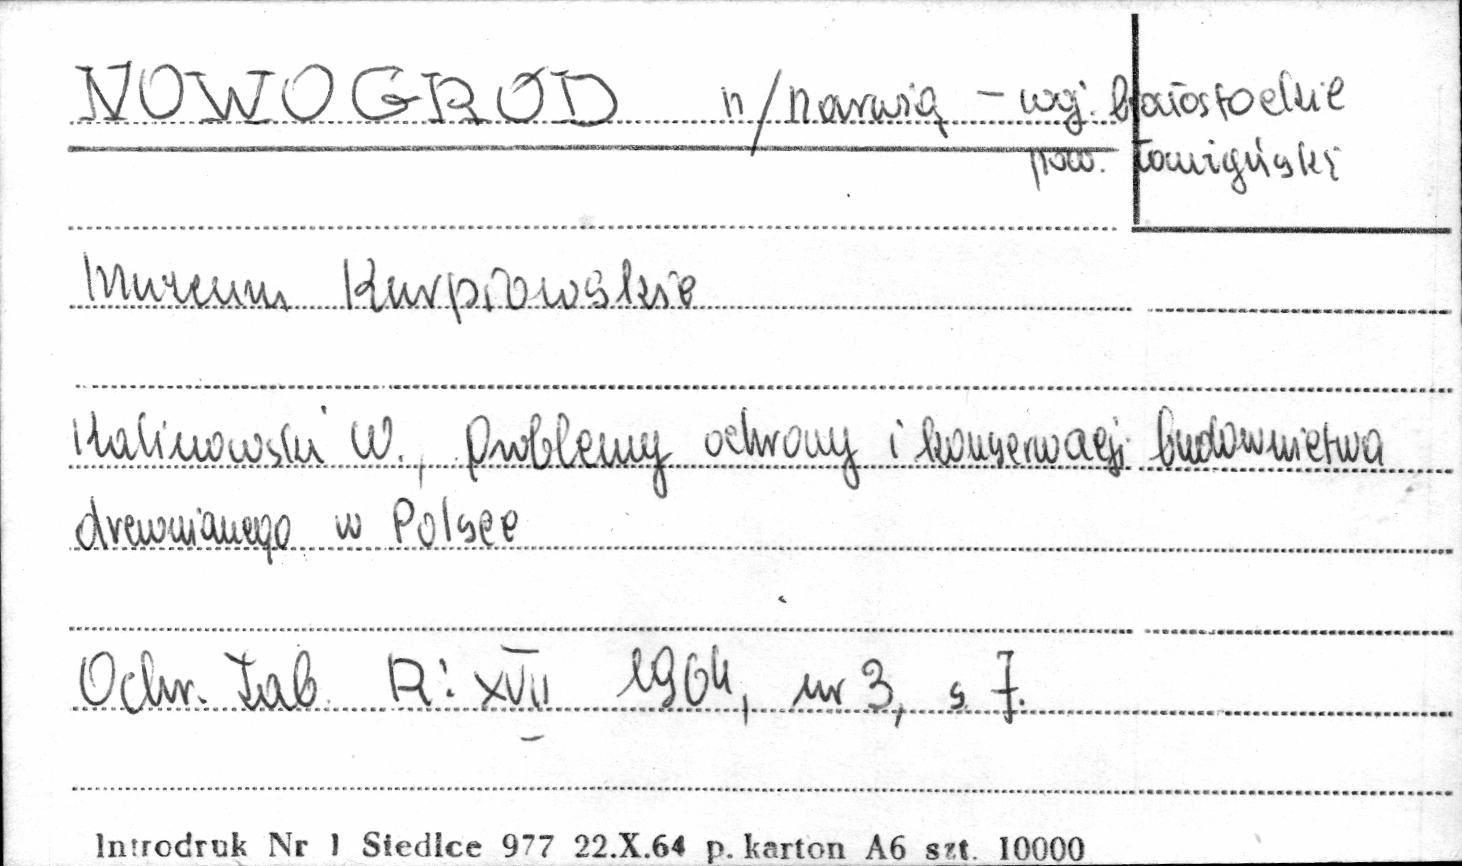 NOWOGRÓD n/Narwią - woj. białostockie
pow. łomżyński
Muzeum Kurpiowskie
Kalinowski W., Problemy ochrony i konserwacji budownictwa
drewnianego w Polsce
Ochr. Zab. R: XVII 1964, nr 3, s 7.
Introdruk Nr 1 Siedlce 977 22.X.64 p. karton A6 szt. 10000